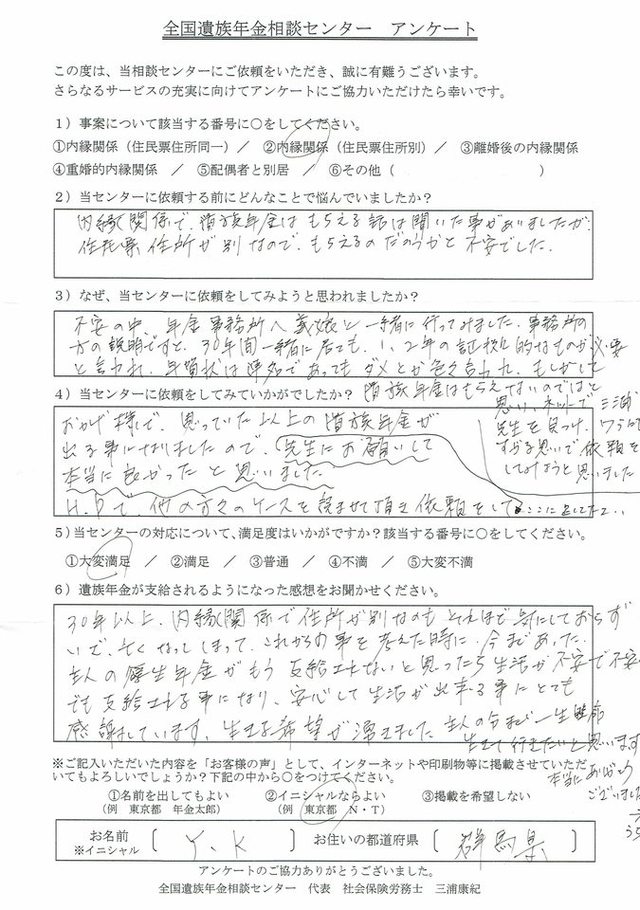 全国遺族年金相談センター　アンケート
この度は、当相談センターにご依頼をいただき、誠に有難うございます。
さらなるサービスの充実に向けてアンケートにご協力いただけたら幸いです。
1）事案について該当する番号に○をしてください。
①内縁関係（住民票住所同一）／　②内縁関係（住民票住所別）／　③離婚後の内縁関係
④重婚的内縁関係　／　⑤配偶者と別居　／　⑥その他（　　　　　　　　）
2）当センターに依頼する前にどんなことで悩んでいましたか？
内縁関係で、遺族年金はもらえる話は聞いた事がありましたが
住民票住所が別なので、もらえるのだろうかと不安でした。
3）なぜ、当センターに依頼をしてみようと思われましたか？
不安の中、年金事務所へ義娘と一緒に行ってみました。事務所の
方の説明ですと、30年間一緒に居ても、1、2年の証拠的なものが必要
と言われ、年賀状は連名であってもダメとか色々言われ、もしかして
遺族年金はもらえないのではと
思い、ネットで三浦
先生を見つけ、ワラにも
すがる思いで依頼を
してみようと思いました
4）当センターに依頼をしてみていかがでしたか？
おかげ様で、思っていた以上の遺族年金が
出る事になりましたので、先生にお願いして
本当に良かったと思いました
H.Pで、他の方々のケースを読ませて頂き依頼をして
5）当センターの対応について、満足度はいかがですか？該当する番号に○をしてください。
①大変満足　／　②満足　／　③普通　／　④不満　／　⑤大変不満
6）遺族年金が支給されるようになった感想をお聞かせください。
30年以上、内縁関係で住所が別なのもそれほど気にしておらず
いで、亡くなってしまって、これからの事を考えた時に、今まであった
主人の厚生年金がもう支給されないと思ったら生活が不安で不安
でも支給される事になり、安心して生活が出来る事にとても
感謝しています。生きる希望が湧きました 主人の分まで一生懸命
生きて行きたいと思います
本当にありがとう
ございました
※ご記入いただいた内容を「お客様の声」として、インターネットや印刷物等に掲載させていただ
いてもよろしいでしょうか？下記の中から○をつけてください。
①名前を出してもよい　　②イニシャルならよい　　③掲載を希望しない
（例　東京都　年金太郎）　　（例　東京都　N・T）
お名前
※イニシャル
〔　Y.K　〕
お住いの都道府県
〔　群馬県　〕
アンケートのご協力ありがとうございました。
全国遺族年金相談センター　代表　社会保険労務士　三浦康紀